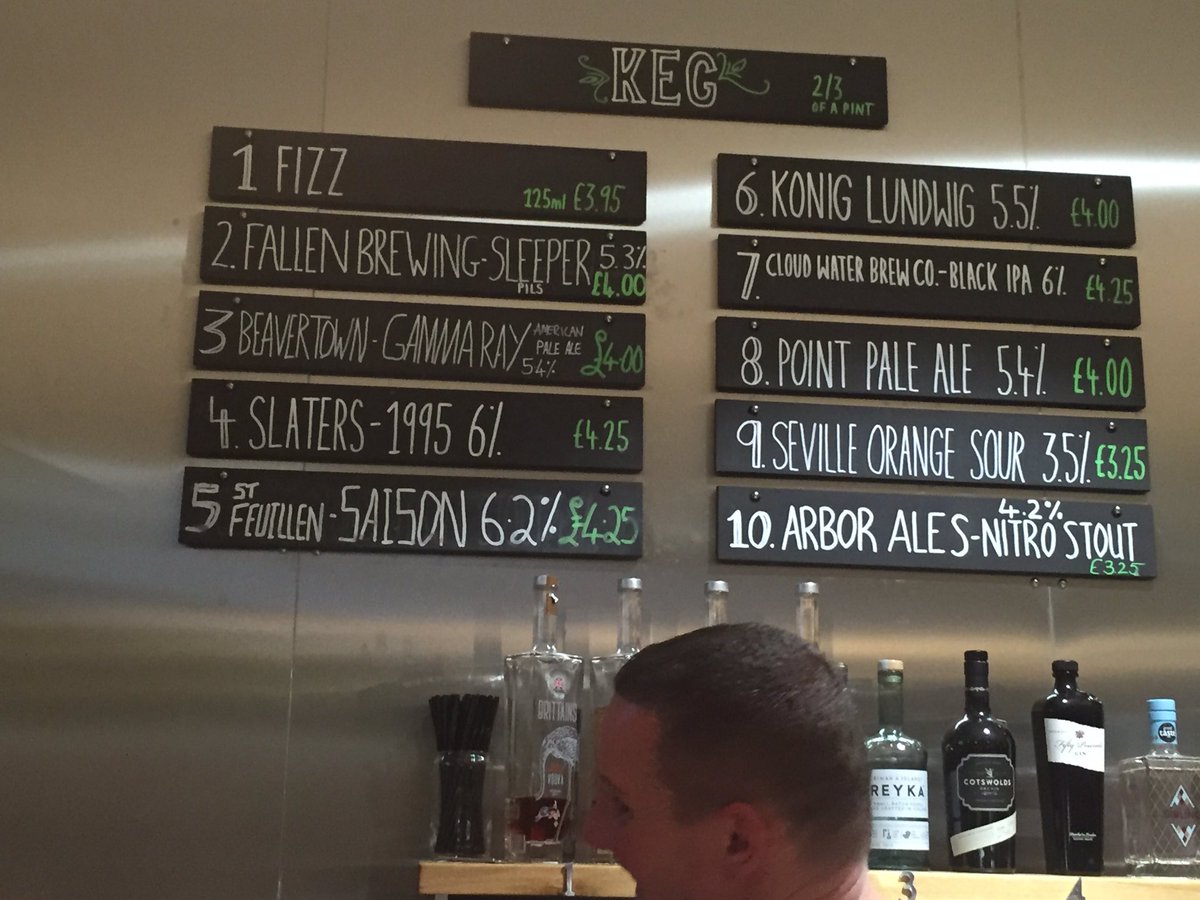 KEG
2/3
OF A PINT
1 FIZZ
125ml £3.95
2. FALLEN BREWING-SLEEPER 5.3%
PILS £4.00
3 BEAVERTOWN - GAMMA RAY AMERICAN PALE ALE 5.4% £4.00
4. SLATERS - 1995 6% £4.25
5 ST FEUILLEN - SAISON 6.2% £4.25
6. KONIG LUNDWIG 5.5% £4.00
7. CLOUD WATER BREW CO. - BLACK IPA 6% £4.25
8. POINT PALE ALE 5.4% £4.00
9. SEVILLE ORANGE SOUR 3.5% £3.25
10. ARBOR ALES-NITRO STOUT 4.2%
£3.25
BRITTAINS
VODKA
REYKA
COTSWOLDS
GIN
3
4